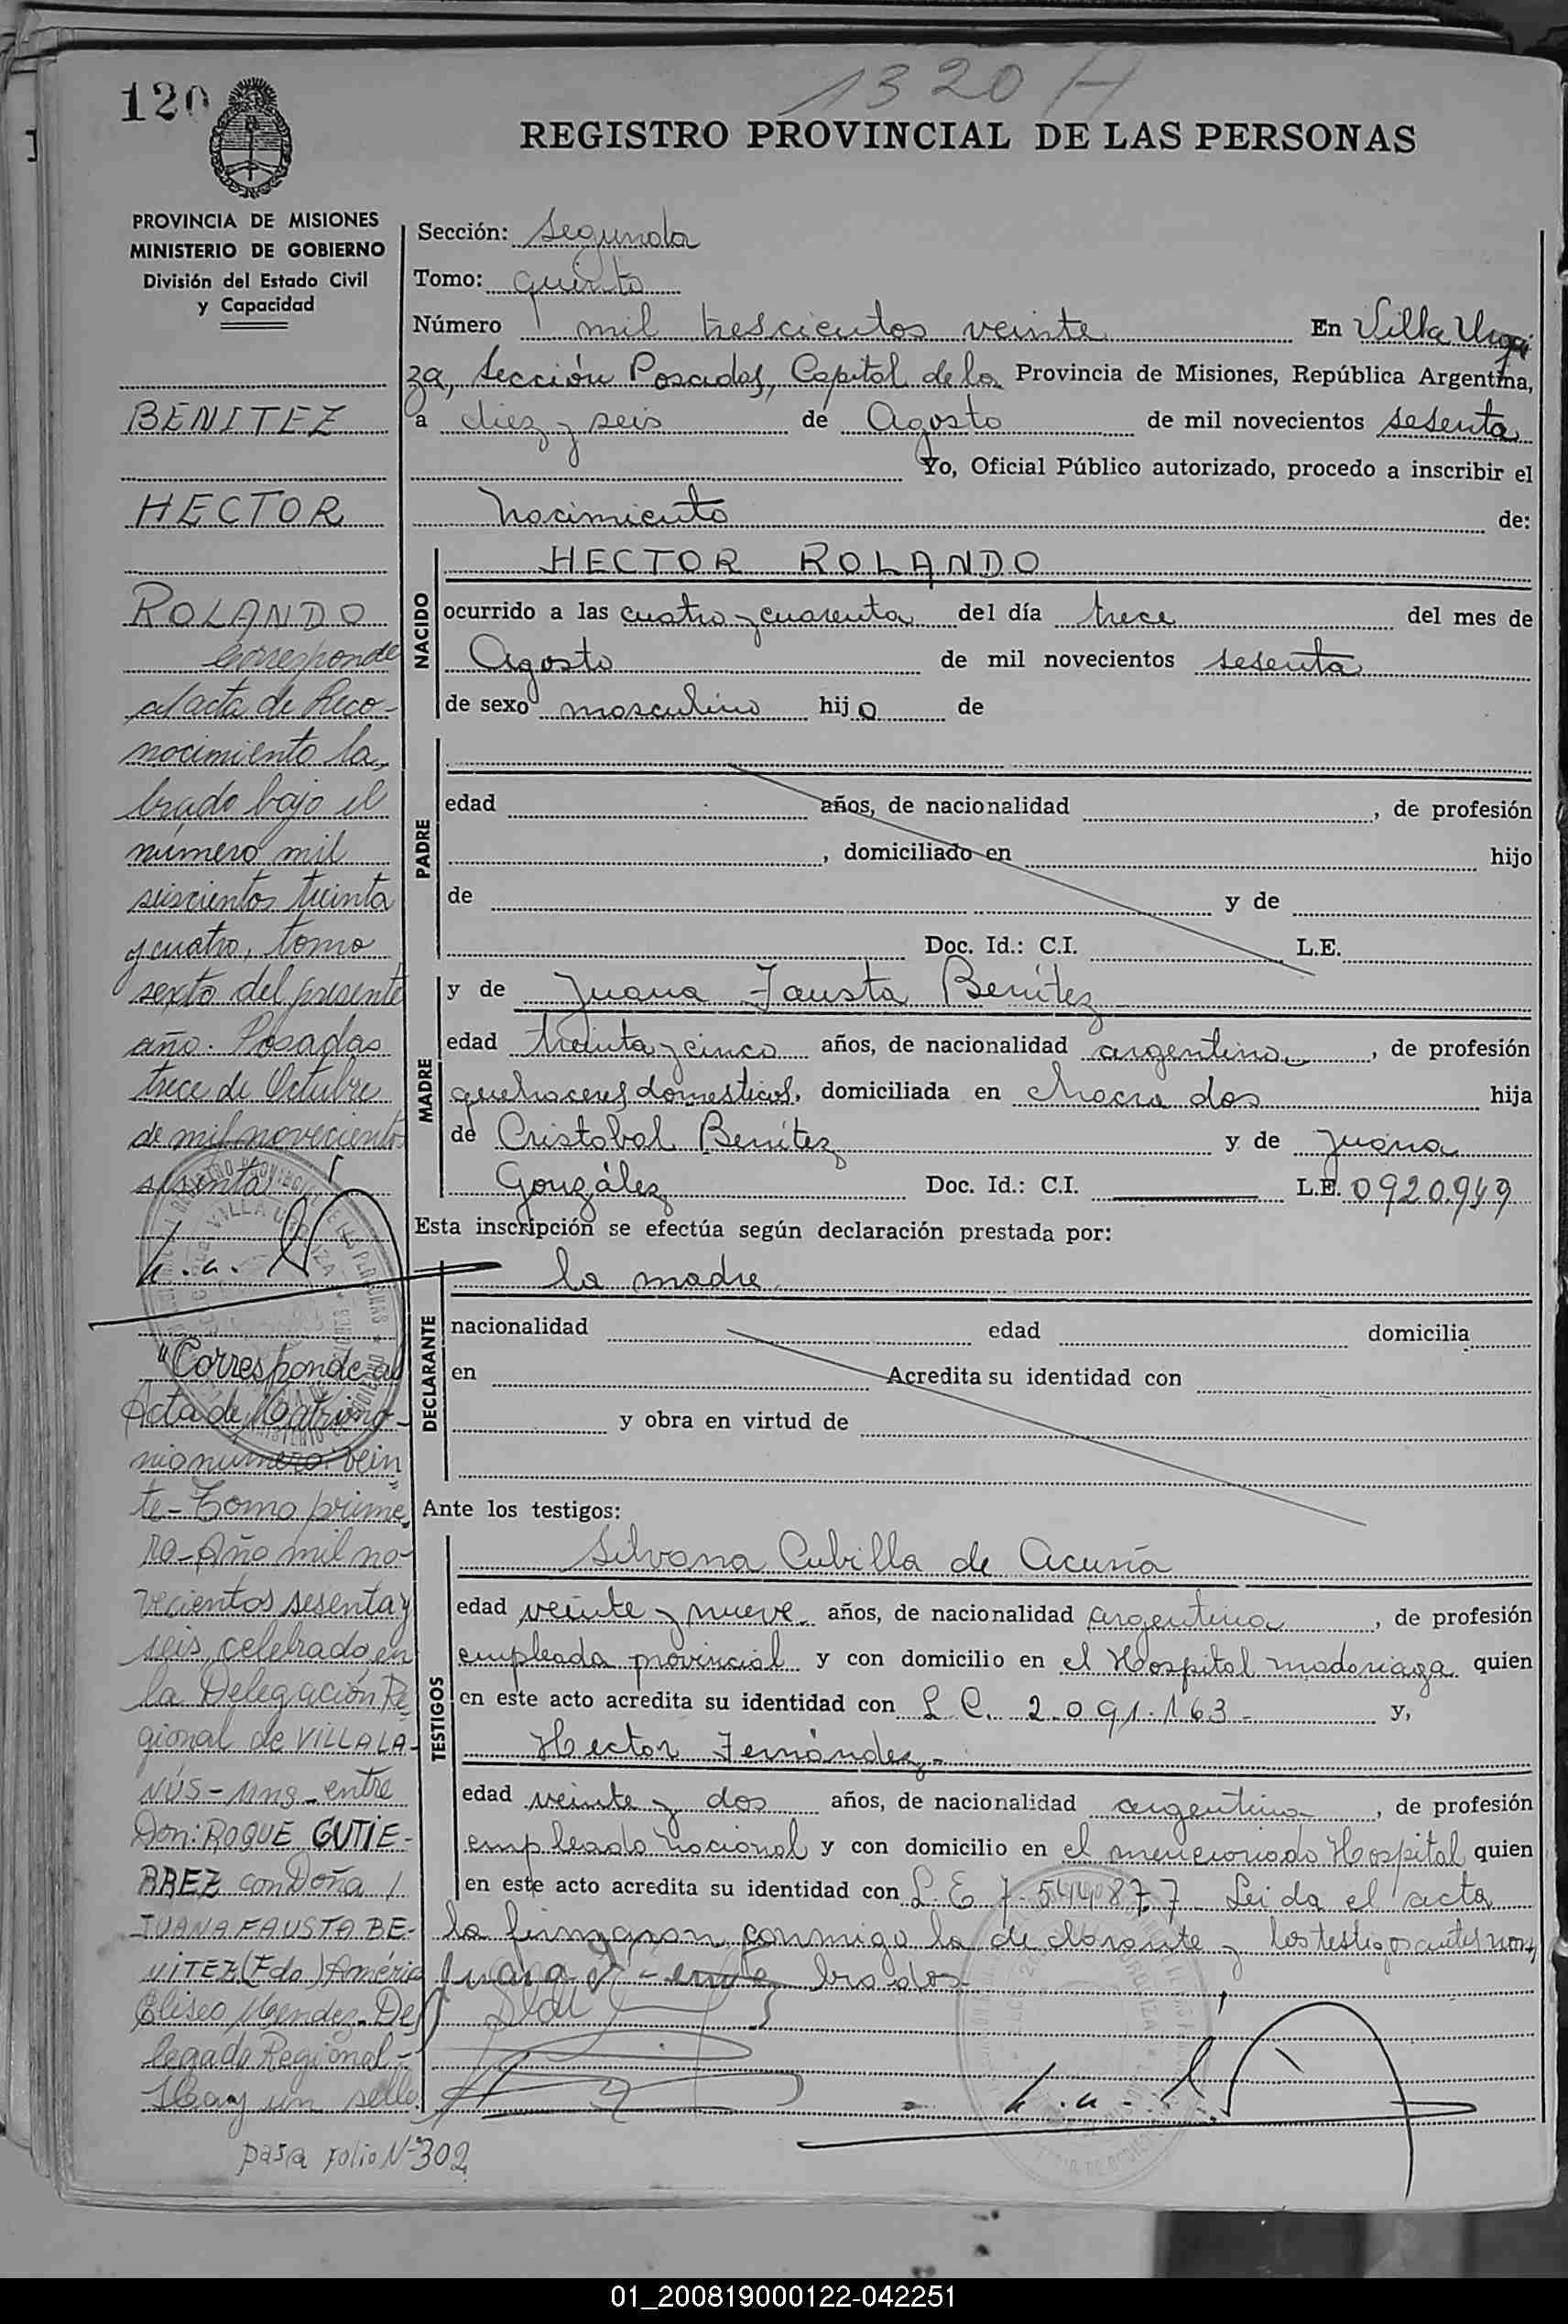 1320 H
120
REGISTRO PROVINCIAL DE LAS PERSONAS
PROVINCIA DE MISIONES
MINISTERIO DE GOBIERNO
División del Estado Civil
y Capacidad
BENITEZ
HECTOR
ROLANDO
Corresponde
al acta de Reco-
nocimiento la-
brado bajo el
número mil
seiscientos treinta
y cuatro, tomo
sexto del presente
año. Posadas
trece de Octubre
de mil novecientos
sesenta
"Corresponde al
Acta de Matrimo-
nio numero: vein
te - Tomo prime
ro - Año mil no-
vecientos sesenta y
seis, celebrado en
la Delegación Re
gional de VILLA LA-
NÚS - Mns - entre
Don: ROQUE GUTIE-
RREZ con Doña
JUANA FAUSTA BE-
NITEZ (Fdo) Américo
Eliseo Mendez - De
legado Regional -
Hay un sello
pasa Folio Nº 302
Sección: Segunda
Tomo: quinto
Número mil trescientos veinte En Villa Urqui
za, Sección Posadas, Capital de la Provincia de Misiones, República Argentina,
a diez y seis de Agosto de mil novecientos sesenta
Yo, Oficial Público autorizado, procedo a inscribir el
nacimiento de:
NACIDO
HECTOR ROLANDO
ocurrido a las cuatro y cuarenta del día trece del mes de
Agosto de mil novecientos sesenta
de sexo masculino hijo de
PADRE
edad años, de nacionalidad , de profesión
, domiciliado en hijo
de y de
Doc. Id.: C.I. L.E.
MADRE
y de Juana Fausta Benítez
edad treinta y cinco años, de nacionalidad argentina , de profesión
quehaceres domesticos, domiciliada en chacra dos hija
de Cristobal Benítez y de Juana
González Doc. Id.: C.I. L.E. 0920.949
Esta inscripción se efectúa según declaración prestada por:
DECLARANTE
la madre
nacionalidad edad domicilia
en Acredita su identidad con
y obra en virtud de
Ante los testigos:
TESTIGOS
Silvana Cubilla de Acuña
edad veinte y nueve años, de nacionalidad argentina , de profesión
empleada provincial y con domicilio en el Hospital madariaga quien
en este acto acredita su identidad con L C. 2.091.163 - y,
Hector Fernández -
edad veinte y dos años, de nacionalidad argentina , de profesión
empleado nacional y con domicilio en el mencionado Hospital quien
en este acto acredita su identidad con L.E 7.544.877 Leida el acta
la firmaron conmigo la declarante y los testigos
01_200819000122-042251